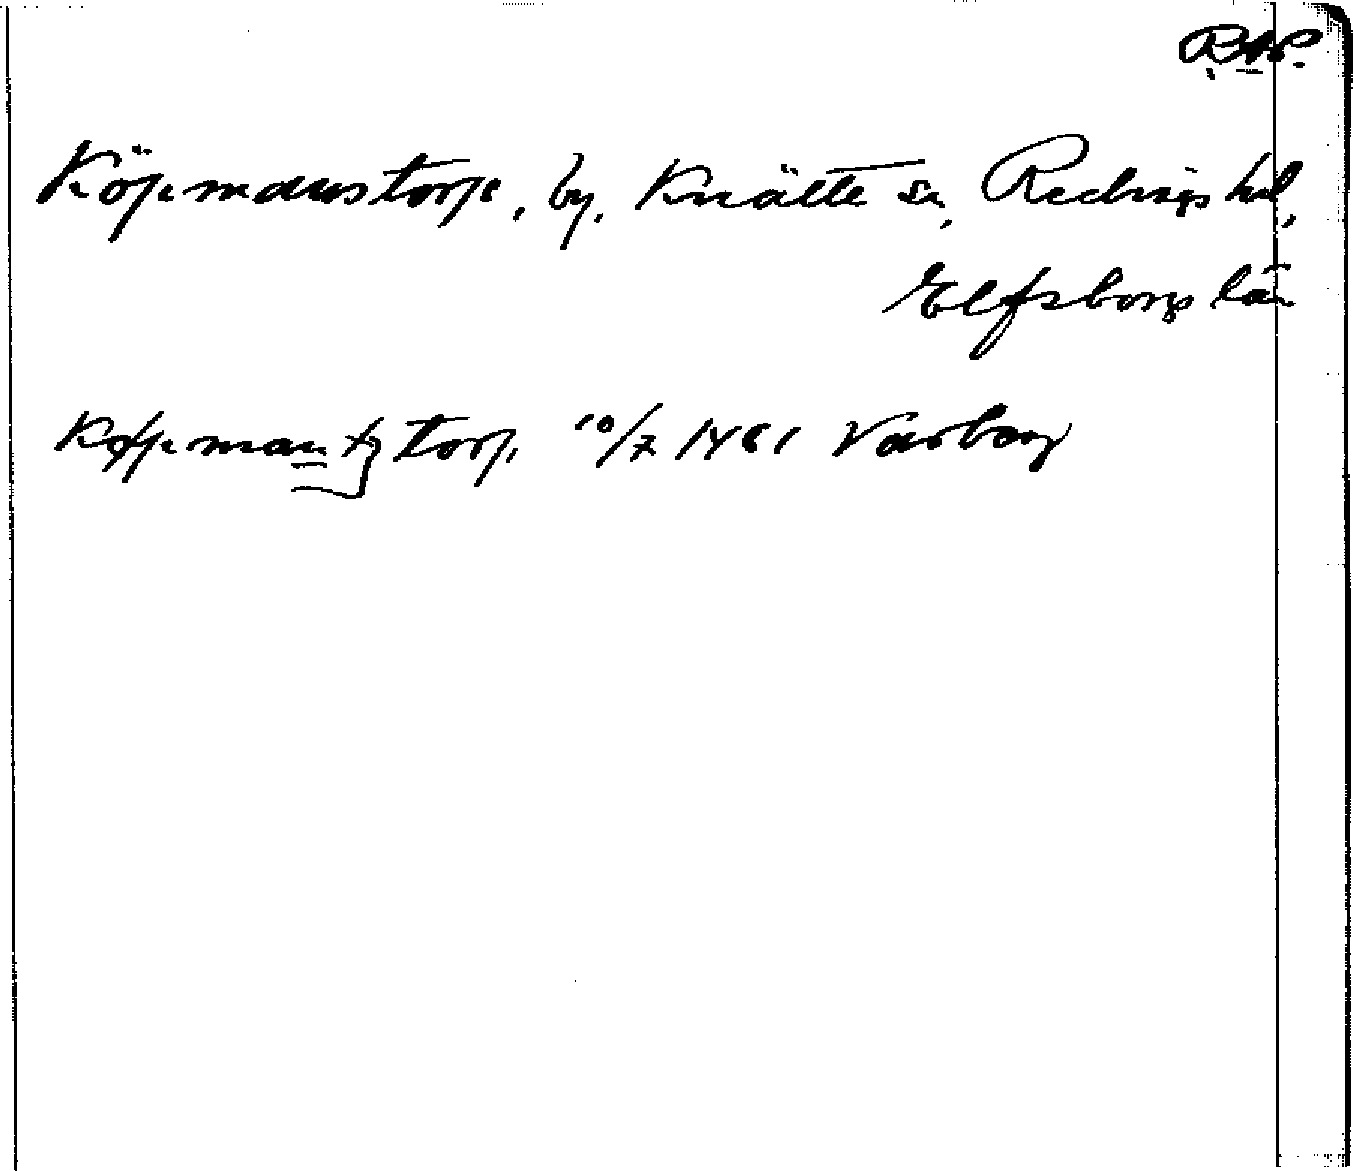 RAP.
Köpmanstorp, by, Knätte sn, Redvägs hd,
Elfsborgs län
Køpmantztorp 10/7 1461 Varberg